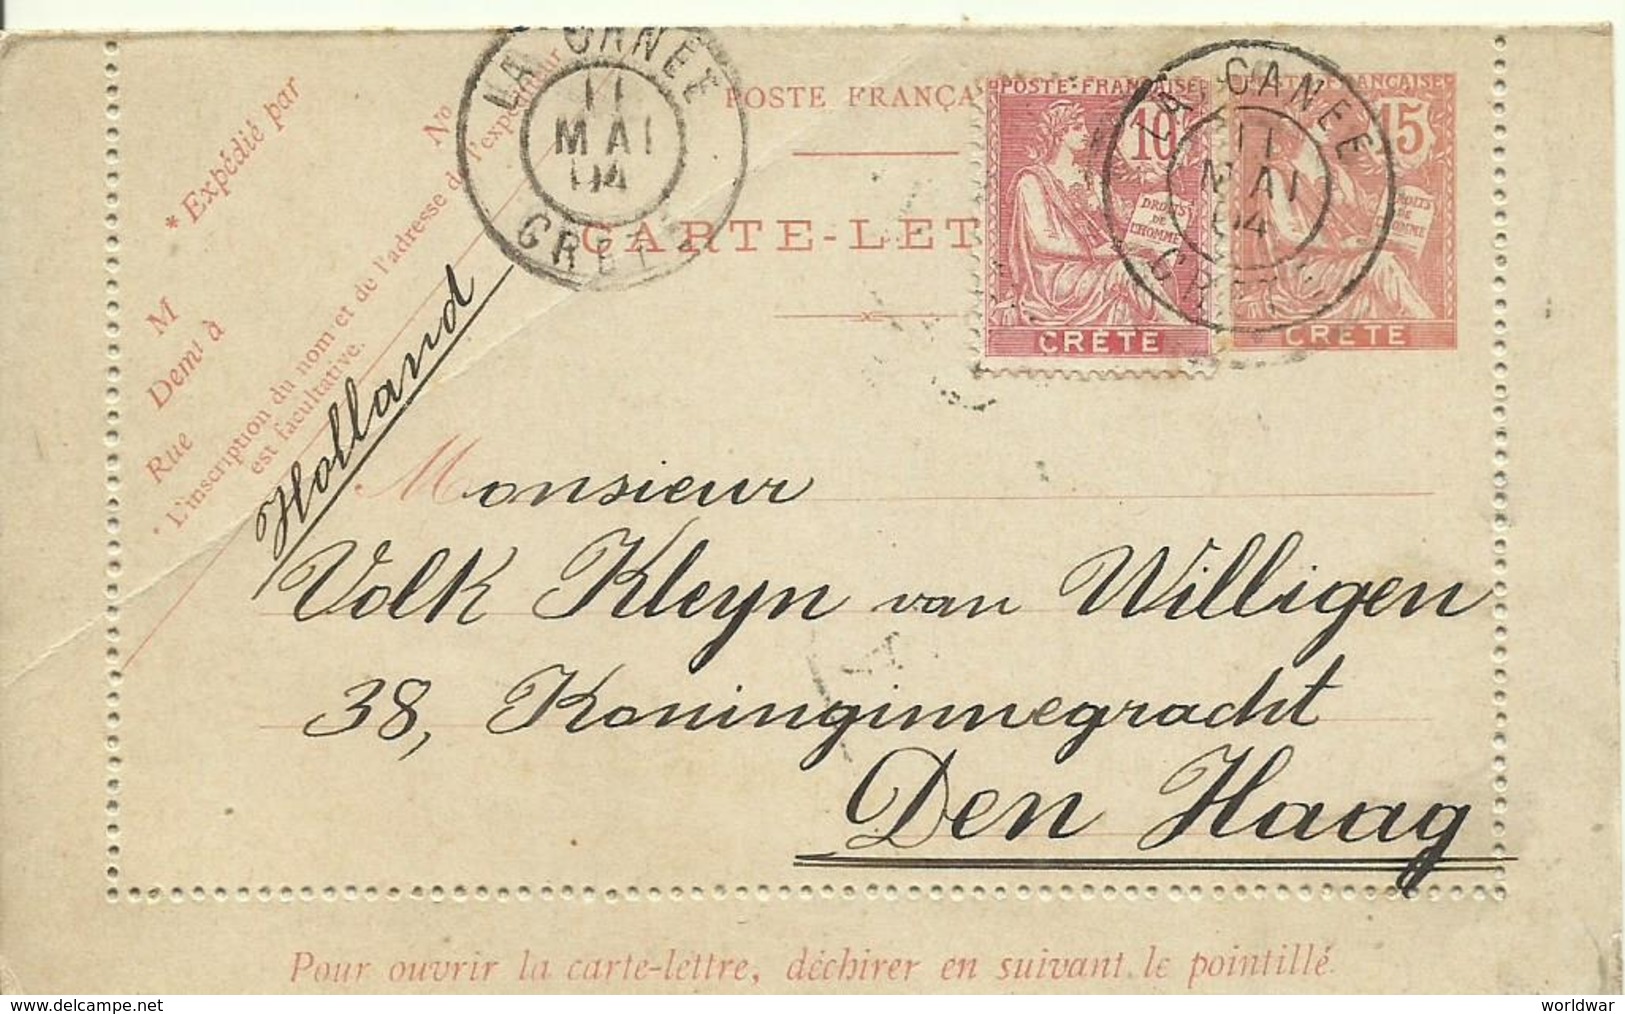 LA CANEE
11
MAI
04
CRETE
POSTE FRANÇA
CARTE-LET
POSTE·FRANÇAISE
10
DROITS
DE
L'HOMME
CRÈTE
LA CANEE
11
MAI
04
CRETE
POSTE FRANÇAISE
15
DROITS
DE
L'HOMME
CRÈTE
* Expédié par
M
Demt à
Rue
No
* L'inscription du nom et de l'adresse de l'expéditeur
est facultative.
Holland
Monsieur
Volk Kleyn van Willigen
38, Koninginnegracht
Den Haag
Pour ouvrir la carte-lettre, déchirer en suivant le pointillé.
delcampe.net
worldwar